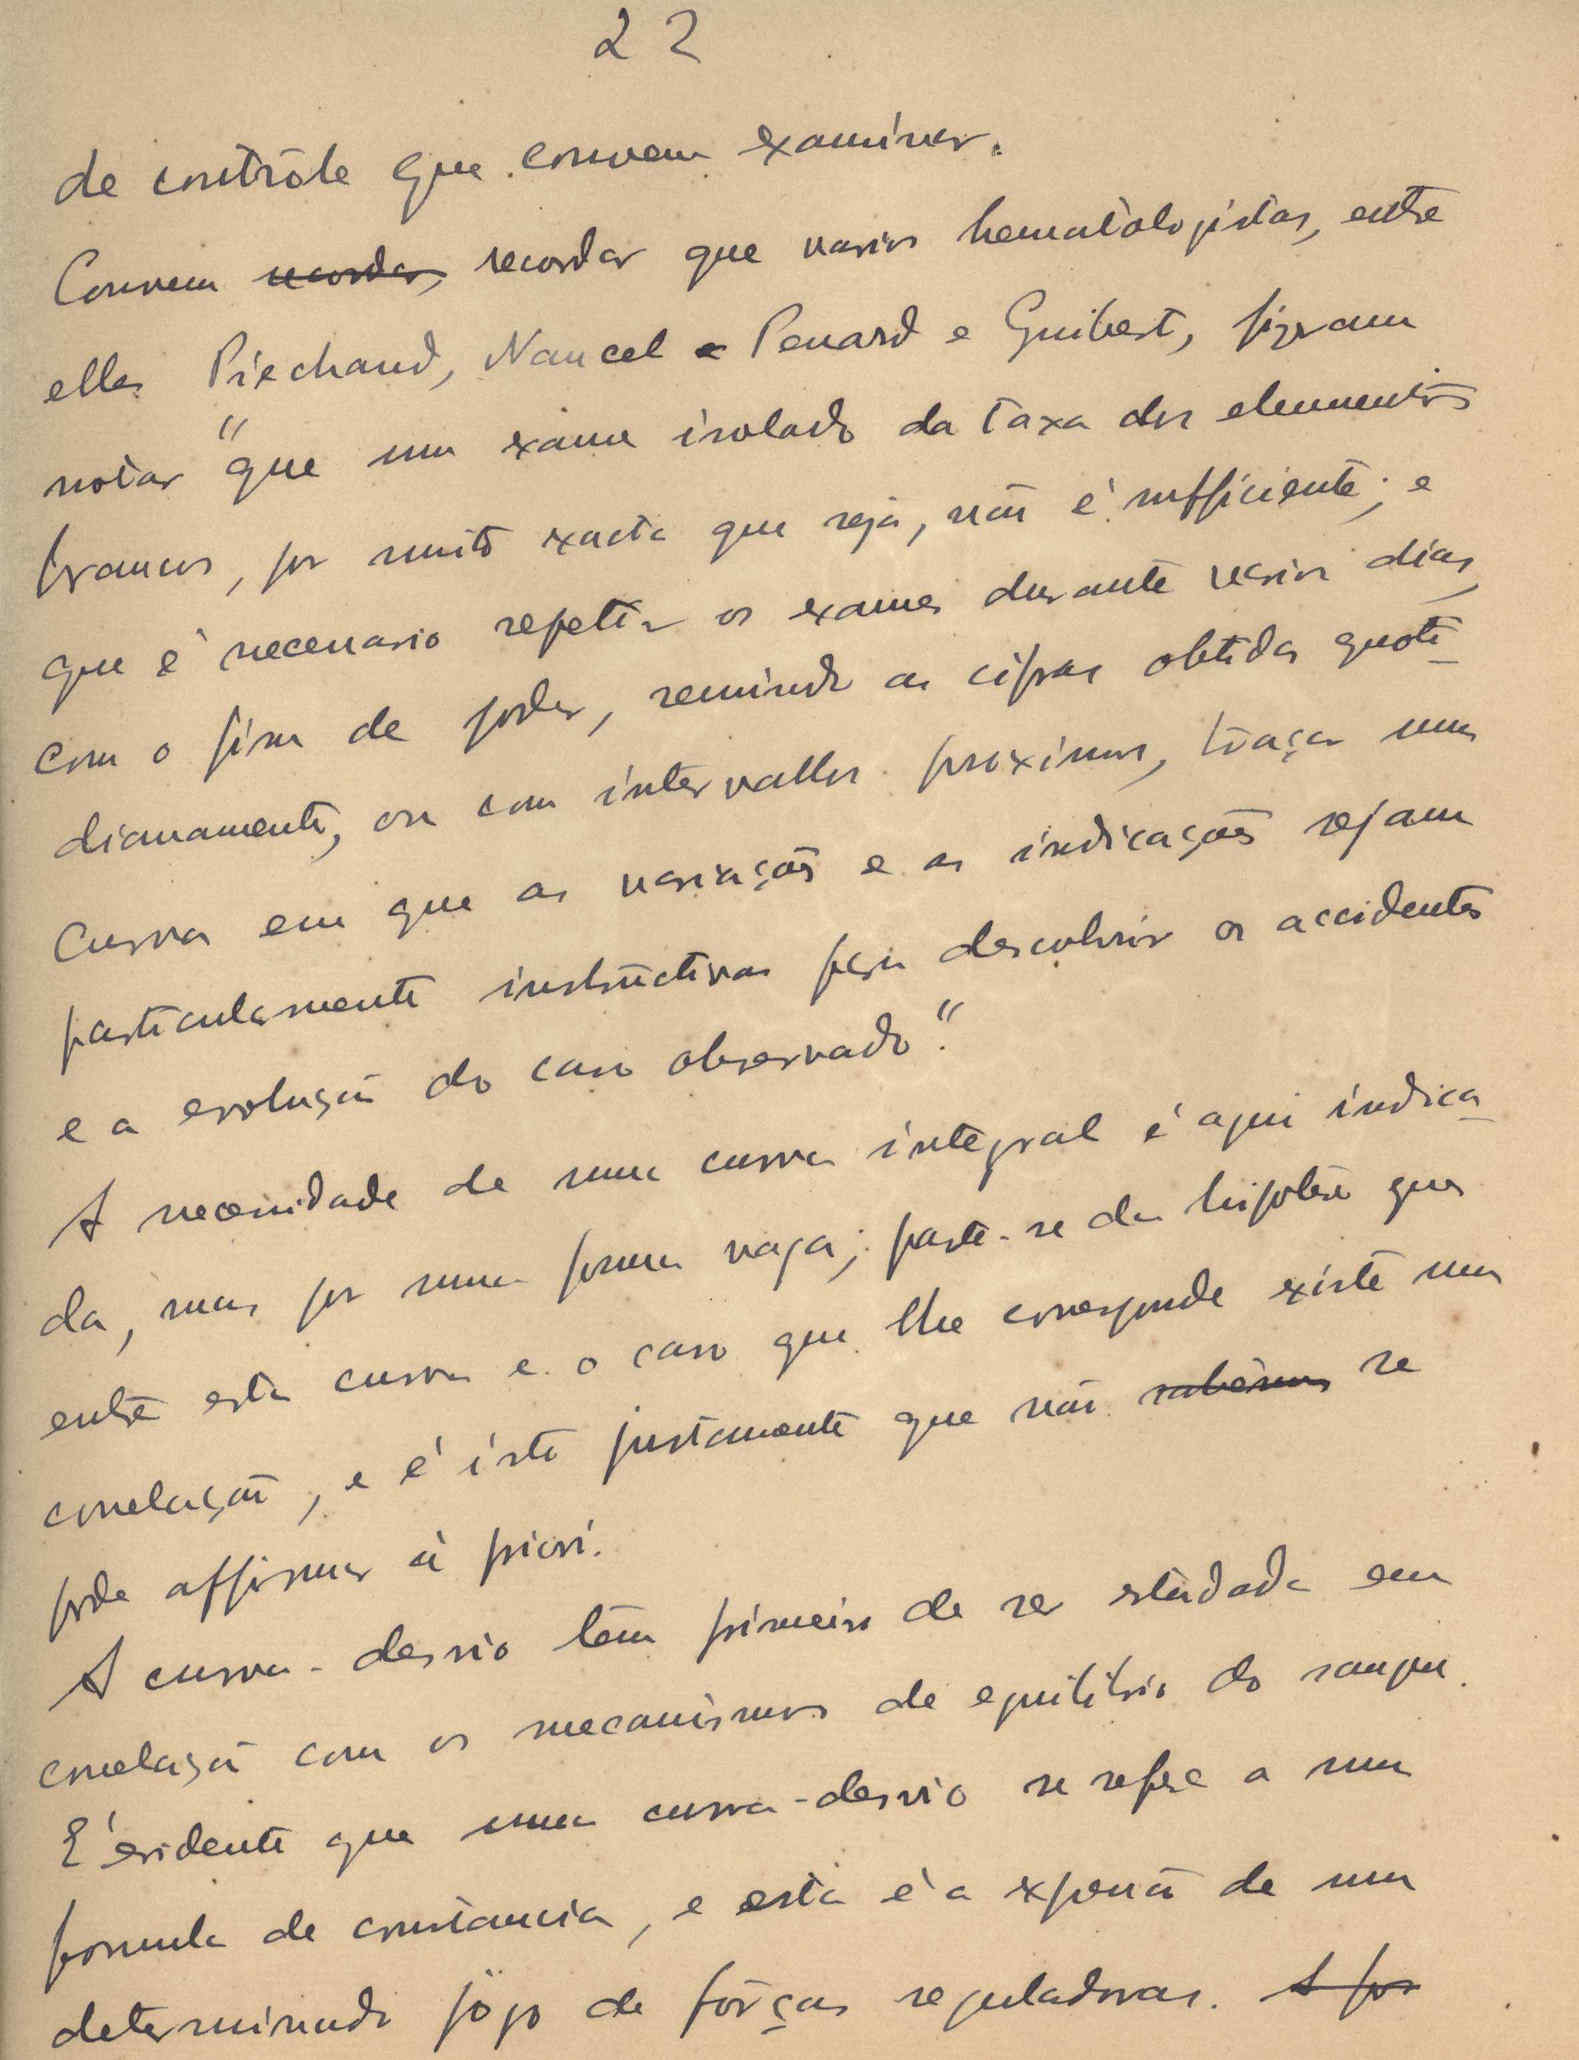 22
de contrôle que convem examinar.
Convem recordar, recordar que varios hematologistas, entre
elles Piechaud, Nancel e Penard e Guibert, fizeram
notar "que um exame isolado da taxa dos elementos
brancos, por muito exacta que seja, não é sufficiente; e
que é necessario repetir os exames durante varios dias,
com o fim de poder, reunindo as cifras obtidas quoti-
dianamente, ou com intervallos proximos, traçar uma
curva em que as variações e as indicações sejam
particularmente instructivas para descobrir os accidentes
e a evolução do caso observado".
A necessidade de uma curva integral é aqui indica-
da, mas por uma forma vaga; parte-se da hipotese que
entre esta curva e o caso que lhe corresponde existe uma
correlação, e é isto justamente que não sabemos se
pode affirmar à priori.
A curva-desvio têm primeiro de ser estudada em
correlação com os mecanismos de equilibrio do sangue.
E' evidente que uma curva-desvio se refere a uma
formula de constancia, e esta é a expressão de um
determinado jôgo de fôrças reguladoras. A for